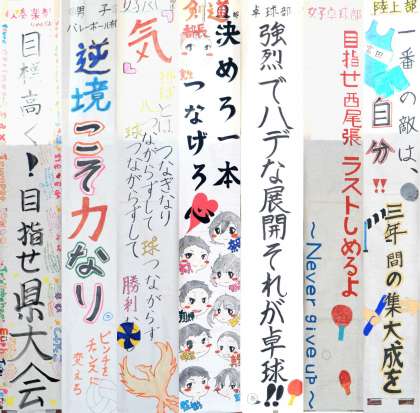 陸上部
一番の敵は、
自分!!
三年間の集大成を
女子卓球部
目指せ西尾張 ラストしめるよ
~Never give up~
卓球部
強烈でハデな展開それが卓球!!
剣道
決めろ一本
つなげろ心
気
つなぎなり
球つながらず
つながらずして
勝利
男子
バレーボール部
逆境こそ力なり
ピンチを
チャンスに
変えろ
目標高く!目指せ県大会